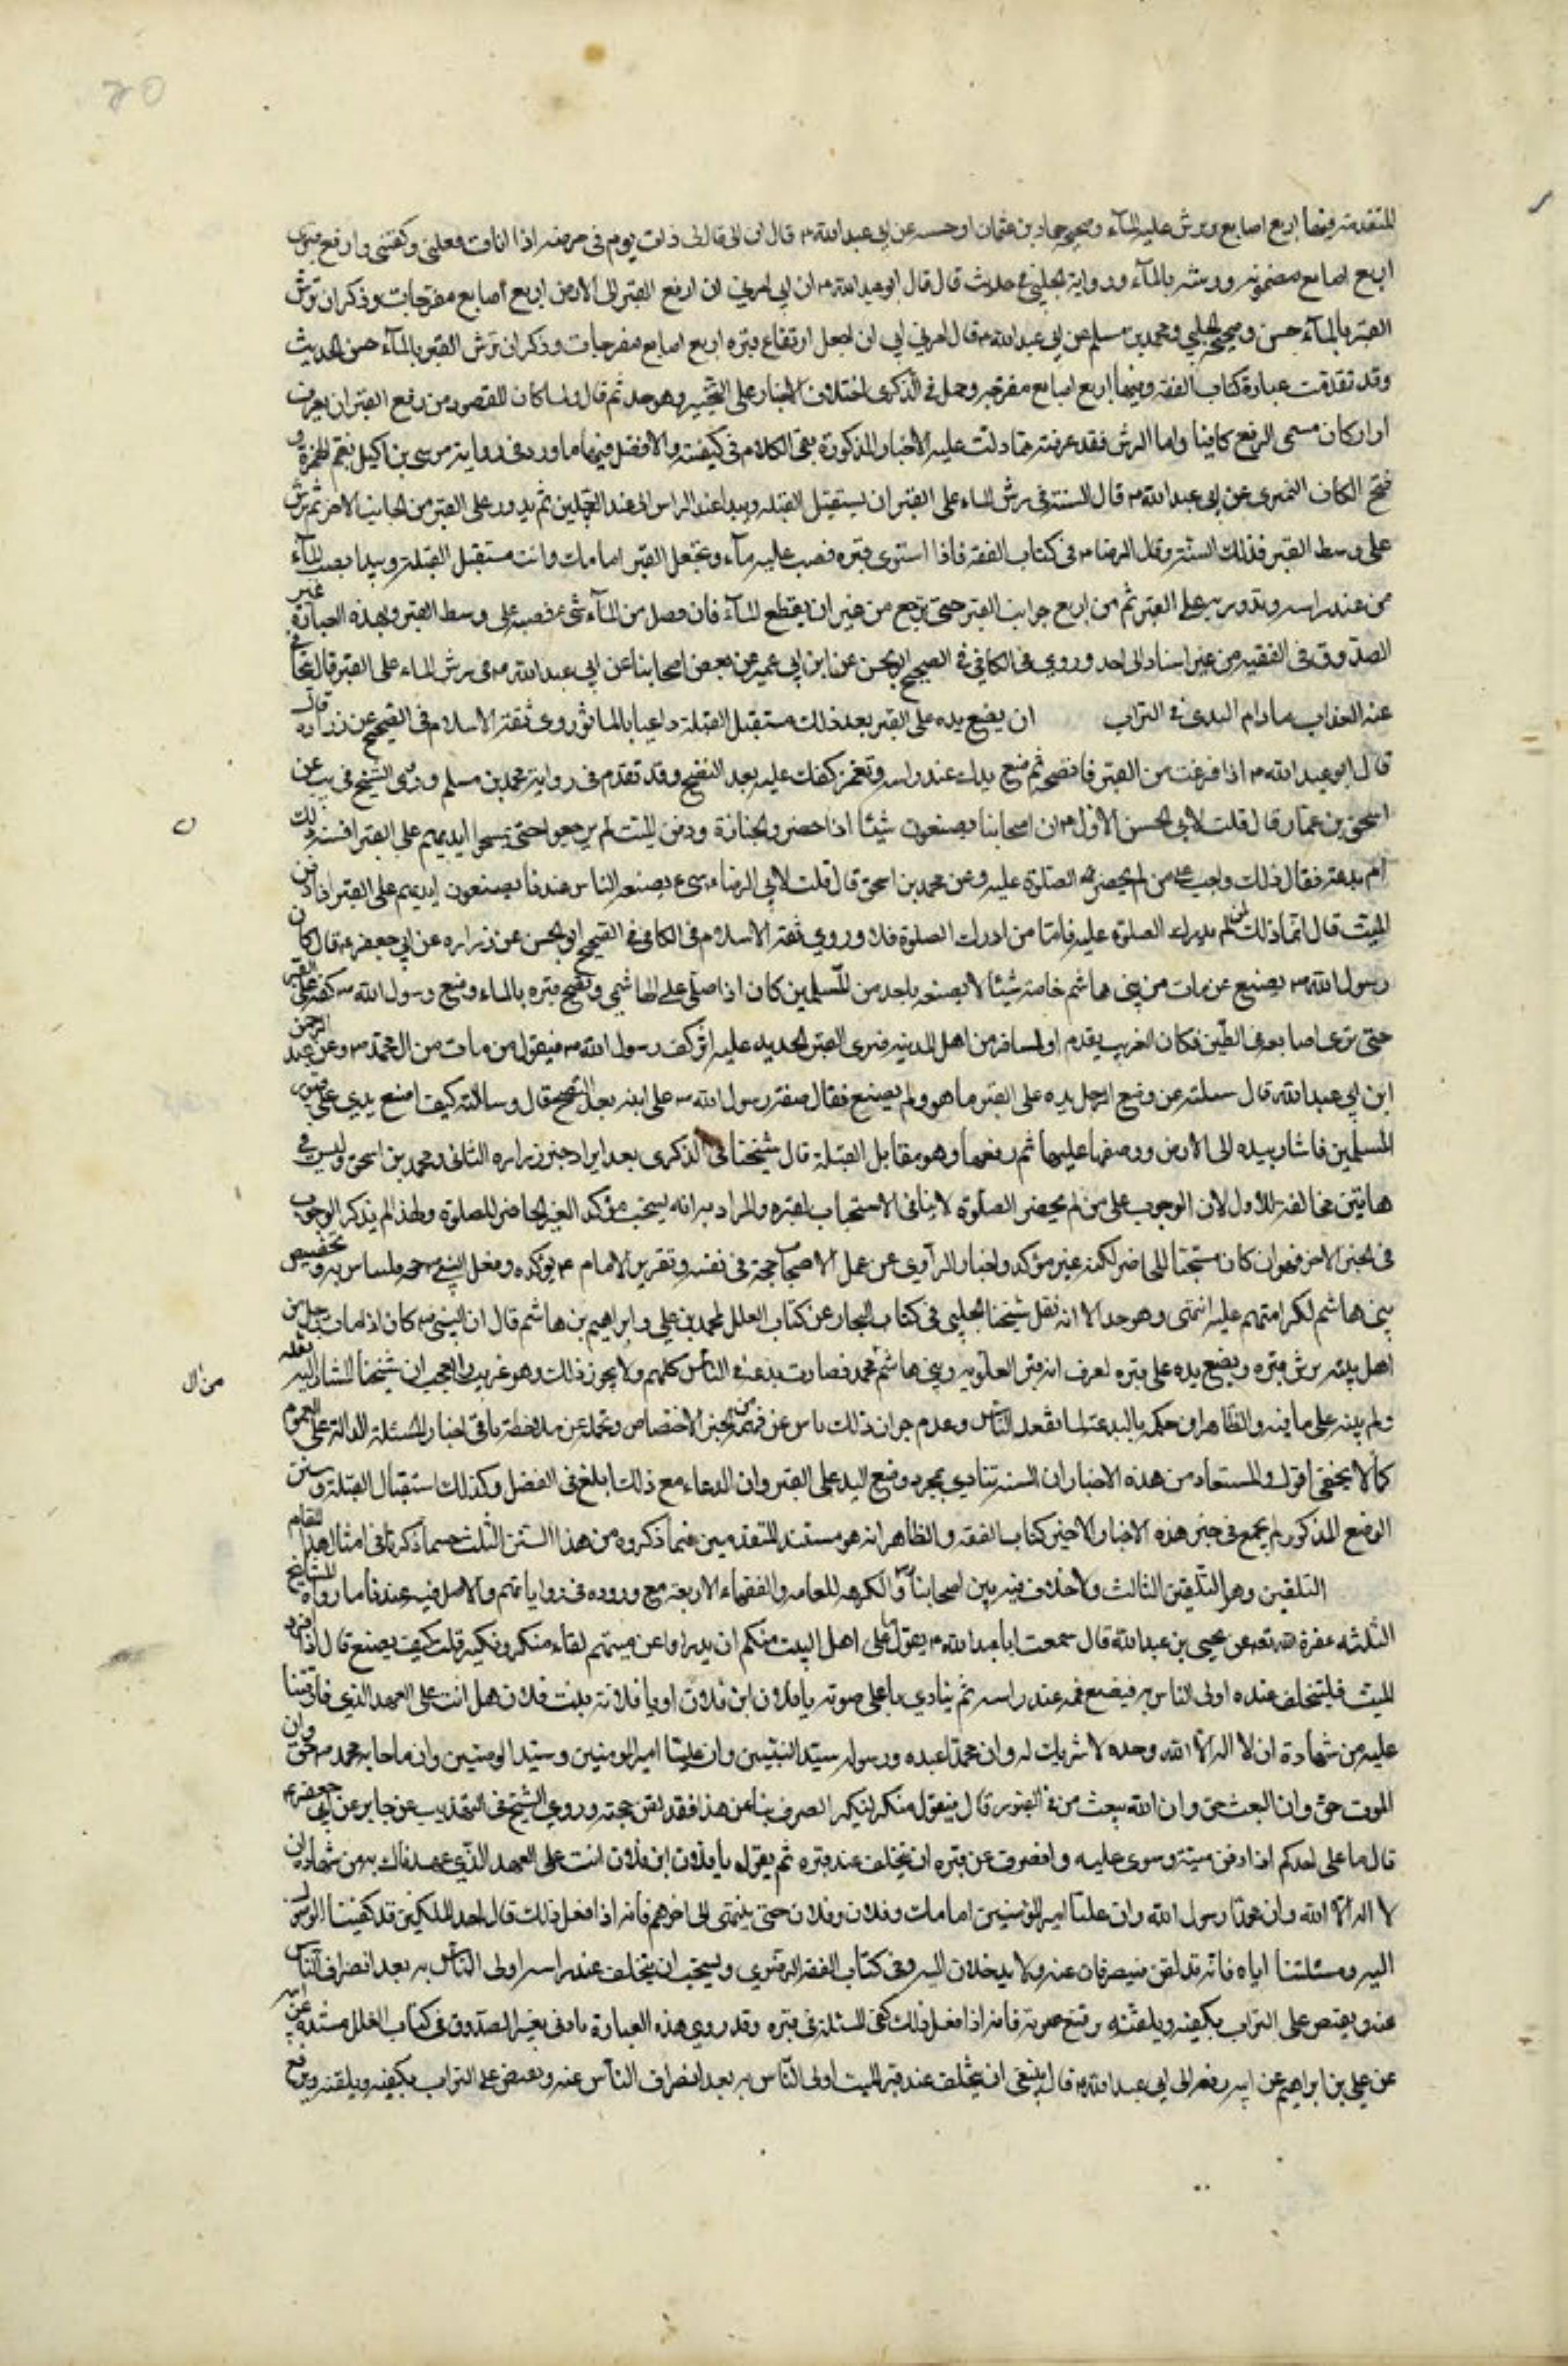 المتقدمة وفيها اربع اصابع ويرش عليه الماء وصحيح حماد بن عثمان او حسنه عن ابي عبد الله ع قال ان ابي قال لي ذات يوم في مرضه اذا انا مت فغسلني وكفني وارفع قبري
اربع اصابع مضمومة ورشه بالمآء ورواية الحلبي في حديث قال قال ابو عبد الله ع ان ابي امرني ان ارفع القبر الى الارض اربع اصابع مفرجات وذكر ان ترش
القبر بالمآء حسن وصحيح الحلبي ومحمد بن مسلم عن ابي عبد الله ع قال امرني ابي ان اجعل ارتفاع قبره اربع اصابع مفرجات وذكر ان ترش القبر بالمآء حسن الحديث
وقد تقدمت عبارة كتاب الفقه وفيها اربع اصابع مفرجة وحمل في الذكرى اختلاف الاخبار على التخيير وهو جيد ثم قال ولما كان المقصود من رفع القبر ان يعرف
او ازكان مسمى الرفع كافيا واما الرش فقد عرفته مما دلت عليه الاخبار المذكورة بقي الكلام في كيفيته والافضل فيها ما ورد في رواية موسى بن اكيل بضم الهمزة و
فتح الكاف النميري عن ابي عبد الله ع قال السنة في رش الماء على القبر ان يستقبل القبلة ويبدا عند الراس الى عند الرجلين ثم يدور على القبر من الجانب الاخر ثم يرش
على وسط القبر فذلك السنة وقال الرضا ع في كتاب الفقه فاذا استوى قبره فصب عليه مآء وتجعل القبر امامك وانت مستقبل القبلة ويبدا بصب المآء
من عند راسه وتدور به على القبر ثم من اربع جوانب القبر حتى ترجع من غير ان يقطع المآء فان فضل من المآء شيء فصبه على وسط القبر وبهذه العبارة عبر
الصدوق في الفقيه من غير اسناد الى احد وروي في الكافي في الصحيح او الحسن عن ابن ابي عمير عن بعض اصحابنا عن ابي عبد الله ع في رش الماء على القبر قال يتجافى
عنه العذاب ما دام الندى في التراب ان يضع يده على القبر بعد ذلك مستقبل القبلة داعيا بالماثور روى ثقة الاسلام في الصحيح عن زرارة قال
قال ابو عبد الله ع اذا فرغت من القبر فانضحه ثم ضع يدك عند راسه وتغمز كفك عليه بعد النضح وقد تقدم في رواية محمد بن مسلم وروى الشيخ في يب عن
اسحق بن عمار قال قلت لابي الحسن الاول ع ان اصحابنا يصنعون شيئا اذا حضروا الجنازة ودفن الميت لم يرجعوا حتى يمسحوا ايديهم على القبر افسنة ذلك
ام بدعة فقال ذلك واجب على من لم يحضر الصلوة عليه وعن محمد بن اسحق قال قلت لابي الرضا ع شيء يصنعه الناس عندنا يصنعون ايديهم على القبر اذا دفن
الميت قال انما ذلك لمن لم يدرك الصلوة عليه فاما من ادرك الصلوة فلا وروي ثقة الاسلام في الكافي في الصحيح او الحسن عن زراره عن ابي جعفر ع قال كان
رسول الله ص يصنع بمن مات من بني هاشم خاصة شيئا لا يصنعه باحد من المسلمين كان اذا صلى على الهاشمي ونضح قبره بالماء وضع رسول الله ص كفه على القبر
حتى ترى اصابعه في الطين فكان الغريب يقدم او المسافر من اهل المدينه فيرى القبر الجديد عليه اثر كف رسول الله ص فيقول من مات من ال محمد ص وعن عبد الرحمن
ابن ابي عبد الله قال سئلته عن وضع الرجل يده على القبر ما هو ولم يصنع فقال صنعه رسول الله ص على ابنه بعد النضح قال وسالته كيف اضع يدي على قبور
المسلمين فاشار بيده الى الارض ووضعها عليها ثم رفعها وهو مقابل القبلة قال شيخنا في الذكرى بعد ايراد خبر زراره الثاني ومحمد بن اسحق وليس في
هاتين مخالفة للاول لان الوجوب على من لم يحضر الصلوة لا ينافي الاستحباب لغيره والمراد به انه يستحب مؤكد الغير الحاضر للصلوة ولهذا لم يذكر الوجوب
في الخبر الاخر فهو ان كان مستحبا للحاضر لكنه غير مؤكد واخبار الراوي عن عمل الاصحاب حجة في نفسه وتقرير الامام ع يؤكده وفعل النبي ص وتخصيص
بني هاشم لكرامتهم عليه انتهى وهو جيد الا انه نقل شيخنا المجلسي في كتاب البحار عن كتاب العلل لمحمد بن علي بن ابراهيم بن هاشم قال ان النبي ص كان اذا مات رجل من
اهل بيته يرش قبره ويضع يده على قبره ليعرف انه قبر العلوية وبني هاشم محمد فصارت بدعة في الناس كلهم ولا يجوز ذلك وهو غريب والعجب ان شيخنا المشار اليه نقله
من ال
ولم ينبه على ما فيه والظاهر ان حكمه بالبدعة لما يفعله الناس وعدم جواز ذلك ناش عن فهمه من الخبر الاختصاص وغفلة عن ملاحظة باقي اخبار المسئلة الدالة على العموم
كما لا يخفى اقول والمستفاد من هذه الاخبار ان السنة تتادى بمجرد وضع اليد على القبر وان الدعاء مع ذلك ابلغ في الفضل وكذلك استقبال القبلة وسنن
الوضع المذكور لم يجمع في خبر هذه الاخبار الا خبر كتاب الفقه والظاهر انه هو مستند المتقدمين فيما ذكروه من هذا السنن الثلث حسبما ذكرنا في امثال هذا المقام
التلقين وهو التلقين الثالث ولا خلاف فيه بين اصحابنا وانكره العامه والفقهاء الاربعة مع وروده في رواياتهم والاصل فيه عندنا ما رواه المشايخ
الثلثه عطر الله مرقدهم عن يحيى بن عبد الله قال سمعت ابا عبد الله ع يقول ما على اهل البيت منكم ان يدراوا عن ميتهم لقاء منكر ونكير قلت كيف يصنع قال اذا افرد
الميت فليتخلف عنده اولى الناس به فيضع فمه عند راسه ثم ينادي باعلى صوته يا فلان ابن فلان او يا فلانة بنت فلان هل انت على العهد الذي فارقتنا
عليه من شهادة ان لا اله الا الله وحده لا شريك له وان محمدا عبده ورسوله سيد النبيين وان عليا امير المومنين وسيد الوصيين وان ما جاء به محمد ص حق وان
الموت حق وان البعث حق وان الله يبعث من في القبور قال فيقول منكر لنكير انصرف بنا عن هذا فقد لقن حجته وروي الشيخ في التهذيب عن جابر عن ابي جعفر ع
قال ما على احدكم اذا دفن ميته وسوى عليه وانصرف عن قبره ان يتخلف عند قبره ثم يقول يا فلان ابن فلان انت على العهد الذي عهدناك به من شهادة ان
لا اله الا الله وان محمدا رسول الله وان عليا امير المؤمنين امامك وفلان وفلان حتى ينتهي الى اخرهم فانه اذا فعل ذلك قال احد الملكين قد كفينا الوصول
اليه ومسئلتنا اياه فانه قد لقن فينصرفان عنه ولا يدخلان اليه وفي كتاب الفقه الرضوي ويستحب ان يتخلف عند راسه اولى الناس به بعد انصراف الناس
عنه ويقبض على التراب بكفيه ويلقنه برفيع صوته فانه اذا فعل ذلك كفى المسئلة في قبره وقد روي هذه العبارة بادنى تغيير الصدوق في كتاب العلل مسنده عن ابيه
عن علي بن ابراهيم عن ابيه رفعه الى ابي عبد الله ع قال ينبغي ان يتخلف عند قبر الميت اولى الناس به بعد انصراف الناس عنه ويقبض على التراب بكفيه ويلقنه ويرفع